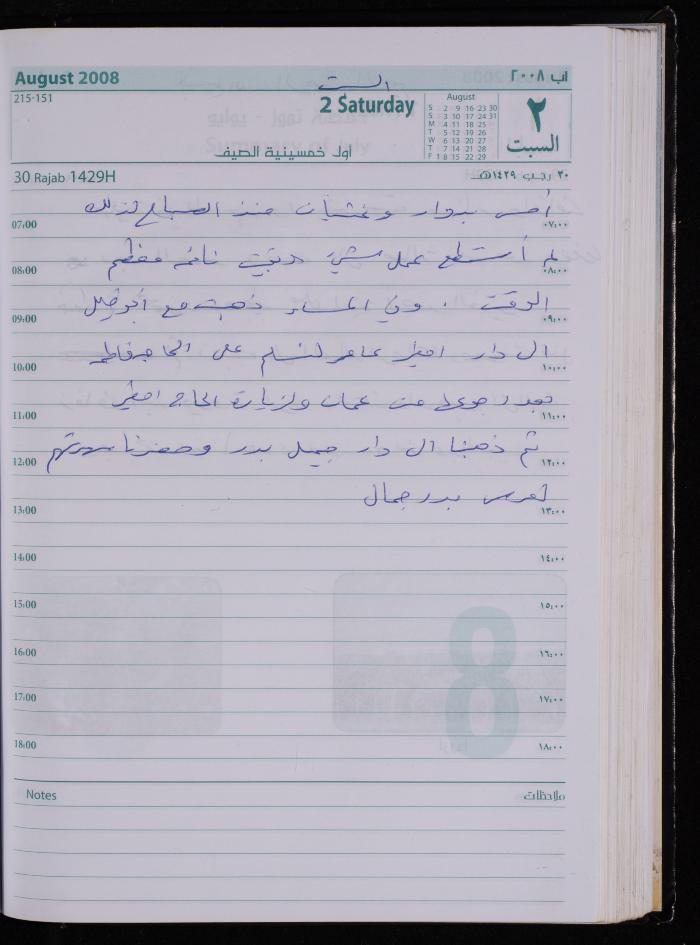 August 2008
آب ٢٠٠٨
215-151
السبت
2 Saturday
August
S 2 9 16 23 30
S 3 10 17 24 31
M 4 11 18 25
T 5 12 19 26
W 6 13 20 27
T 7 14 21 28
F 1 8 15 22 29
٢
السبت
اول خمسينية الصيف
30 Rajab 1429H
٣٠ رجب ١٤٢٩هـ
أحس بدوار وغثيان منذ الصباح لذلك
07:00 ٠٧:٠٠
لم أستطع عمل شيء وبقيت نائمة معظم
08:00 ٠٨:٠٠
الوقت . وفي المساء ذهبت مع أبو
09:00 ٠٩:٠٠
الى دار عامر لنسلم على الحاجة فاطمة
10:00 ١٠:٠٠
بعد رجوعها من عمان ولزيارة الحاج
11:00 ١١:٠٠
ثم ذهبنا الى دار جميل بدر وحضرنا سهرتهم
12:00 ١٢:٠٠
لعرس بدر جمال
13:00 ١٣:٠٠
14:00 ١٤:٠٠
15:00 ١٥:٠٠
16:00 ١٦:٠٠
17:00 ١٧:٠٠
18:00 ١٨:٠٠
Notes
ملاحظات